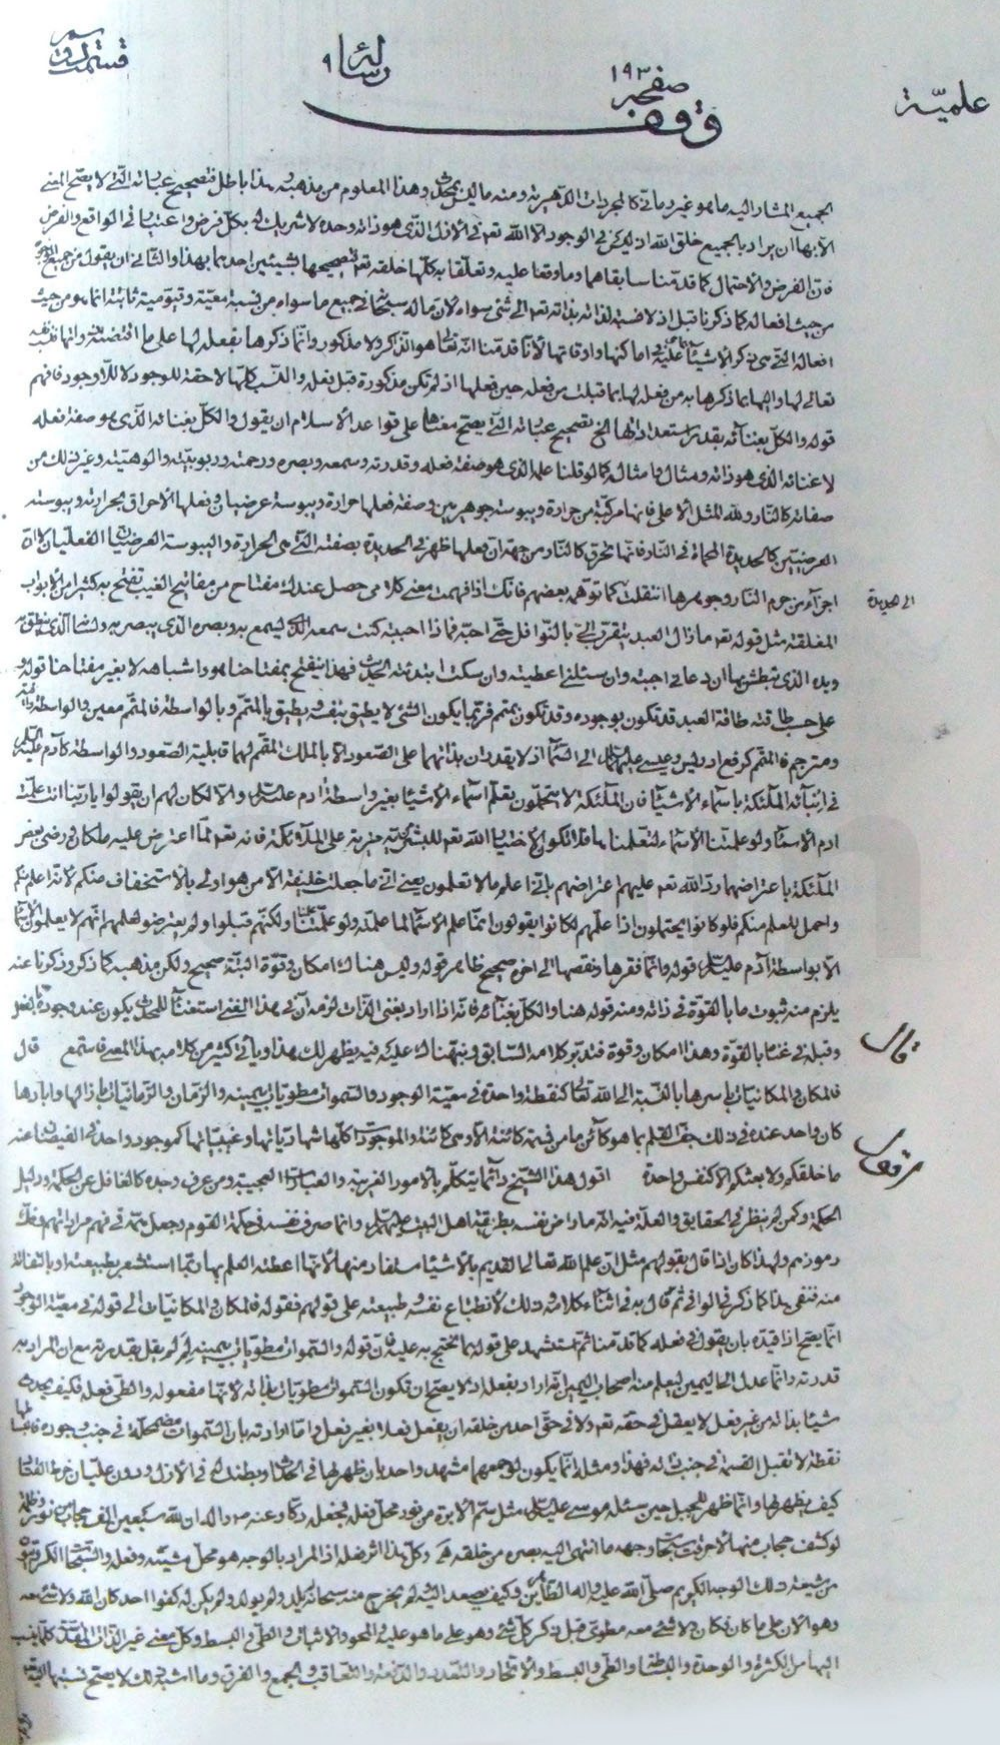 علميّة
صفحه ١٩٣
رسالة ٩
وقف
الجميع المشار اليه ما هو غير زماني كالمجردات الدهرية ومنه ما ليس بمحدث وهذا المعلوم من مذهبه وهذا باطل فتصحيح عباراته التي لا يصح المعنى
الا بها ان يراد بالجميع خلق الله اذ لم يكن في الوجود الا الله تعالى في الازل الذي هو ذاته وحده لا شريك له بكل فرض واعتبار في الواقع والفرض
فان الفرض والاحتمال كما قدمنا سابقا هما وما وقعا عليه وتعلقا به كلها خلقه تعالى
من حيث افعاله كما ذكرنا قبل اذ لا نسبة لذاته بذاته تعالى الى شئ سواه لان ما له سبحانه في جميع ما سواه من نسبة معيّة وقيومية ثابتة انما هو من حيث
افعاله التي هي ذكر الاشياء
تعالى لها والهامها ذكرها به من فعله لها بما قبلت من فعله حين فعلها اذ لم تكن مذكورة قبل فعله والنسب كلها لاحقة للوجود لا للاوجود فافهم
قوله والكل بغنائه بقدر استعداداتها الخ تصحيح عباراته التي يصح معناها على قواعد الاسلام ان يقول والكل بغنائه الذي هو صفة فعله
لا غنائه الذي هو ذاته ومثال ما مثاله كما لو قلنا علمه الذي هو صفة فعله وقدرته وسمعه وبصره ورحمته وربوبيته والوهيته وغير ذلك من
صفاته كالنار ولله المثل الاعلى فانها مركبة من حرارة ويبوسة جوهريين وصفة فعلها حرارة ويبوسة عرضيان وفعلها الاحراق بحرارته ويبوسته
العرضيتين كالحديدة المحماة في النار فانها تحرق كالنار من جهة ان فعلها ظهر في الحديدة بصفته التي هي الحرارة واليبوسة العرضيتان الفعليتان لا ان
اجزاء من جرم النار وجوهرها انتقلت كما توهمه بعضهم فانك اذا فهمت معنى كلامي حصل عندك مفتاح من مفاتيح الغيب تفتح به كثيرا من الابواب
الى الحديدة
المغلقة مثل قوله تعالى ما زال العبد يتقرب اليّ بالنوافل حتى احبه فاذا احببته كنت سمعه الذي يسمع به وبصره الذي يبصر به ولسانه الذي ينطق به
ويده الذي يبطش بها ان دعاني اجبته وان سئلني اعطيته وان سكت ابتدئته الحديث فهذا ينفتح بمفتاحنا هو واشباهه لا بغير مفتاحنا قوله و
على حسب طاقته طاقة العبد قد تكون بوجوده وقد تكون بمتمم فربما يكون الشئ لا يطيق بنفسه ويطيق بالمتمم وبالواسطة فالمتمم معين والواسطة
ومترجم فالمتمم كرفع ادريس وعيسى عليهما السلام الى السماء اذ لا يقدران بذاتهما على الصعود الا بالملك المتمم لهما قابلية الصعود والواسطة كآدم عليه السلام
في انبائه الملئكة باسماء الاشياء فان الملئكة لا يتحملون تعلم اسماء الاشياء بغير واسطة ادم عليه السلام والا لكان لهم ان يقولوا يا ربنا انت علمت
ادم الاسماء ولو علمتنا الاسماء لتعلمنا
الملئكة باعتراضها ردّ الله تعالى عليهم اعتراضهم باني اعلم ما لا تعلمون يعني اني ما جعلت خليفة الا من هو اولى بالاستخفاف منكم لانه اعلم منكم
واحمل للعلم منكم فلو كانوا يحتملون اذا علّمهم لكانوا يقولون انما علم الاسماء لما علمته ولو علمتنا علمنا ولكنهم قبلوا ولم يعترضوا لعلمهم انهم لا يعلمون الاسماء
الا بواسطة آدم عليه السلام قوله وانما فقرها ونقصها الى اخره صحيح ظاهر قوله وليس هناك امكان وقوة البتة صحيح ولكن مذهبه كما ذكر وذكرنا عنه
يلزم منه ثبوت ما بالقوة في ذاته ومنه قوله هنا والكل بغنائه فانه اذا اراد بغنى الذات لزمه
وقبله في غنا بالقوة وهذا امكان وقوة فتدبر كلامه السابق ونبهتك عليه فيه يظهر لك هذا وياتي كثير من كلامه بهذا المعنى فاستمع قال
قال
فالمكان والمكانيات باسرها بالنسبة الى الله تعالى كنقطة واحدة في معيّة الوجود والسموات مطويات بيمينه والزمان والزمانيات بازالها وابادها
كان واحد عنده في ذلك جف القلم بما هو كائن ما من نسمة كائنة الا وهي كائنة والموجودات كلها شهادياتها وغيبياتها كموجود واحد في الفيضان عنه
ما خلقكم ولا بعثكم الا كنفس واحدة اقول هذا الشيخ دائما يتكلم بالامور الغريبة والعبارات العجيبة ومن عرف وحده كالغافل عن الحكمة ودليل
الحكمة وكمن لم ينظر في الحقايق والعلة فيه انه ما راض نفسه بطريقة اهل البيت عليهم السلام وانما صرف نفسه في حكمة القوم وجعل همّه في فهم مراداتهم وفك
رموزهم ولهذا كان اذا قال بقولهم مثل ان علم الله تعالى القديم بالاشياء مستفاد منها لانها اعطته العلم بها ربما استشعر بطبيعته او بالتفاته
منه فنفى هذا كما ذكر في الوافي ثم قال به في اثناء كلامه وذلك لانطباع نفسه وطبيعته على قولهم فقوله فالمكان والمكانيات الى قوله في معيّة الوجود
انما يصح اذا قيده بان يقول في فعله كما قدمنا ثم تستشهد على قوله بما يحتج به عليه فان قوله والسموات مطويات بيمينه لم يقل بقدرته مع ان المراد به
قدرته وانما عدل الى اليمين ليعلم منه اصحاب اليمين انه اراد بفعله اذ لا يصح ان تكون السموات مطويات بذاته لانها مفعوله والطي فعله فكيف يحدث
شيئا بذاته من غير فعل لا يعقل في حقه تعالى ولا في حق احد من خلقه ان يفعل فعلا بغير فعل واما ارادته بان السموات مضمحلة في جنب وجوده
نقطة لا تقبل القسمة في جنب ذاته فهذا ومثله انما يكون لو جمعهما مشهد واحد بان ظهر لها في الحدث او بطنت له في الازل ودون عليان خرط القتاد
كيف يظهر لها وانما ظهر للجبل حين سئله موسى عليه السلام مثل سم الابرة من نور محل فعله فجعله دكا وعنه صلى الله عليه واله ان لله سبعين الف حجاب من نور وظلمة
لو كشف حجاب منها لاحرقت سبحات وجهه ما انتهى اليه بصره من خلقه وكل هذا اثر فعله اذ المراد بالوجه هو محل مشيّته وفعله والسبحات الكروبيون
من شيعة ذلك الوجه الكريم صلى الله عليه واله الطاهرين وكيف يصعد اليه
وهو الان على ما كان فكان ولا شئ معه مطوي قبل ذكر كل شئ وهو على ما هو عليه في المحو والاثبات والطي والبسط وكل معنى غير الذات المقدسة كلما ينسب
اليها من الكثرة والوحدة والطي والبسط والاتحاد والتعدد والدفعة والتعاقب والجمع والفرق وما اشبه ذلك لا يصح نسبتها اليه